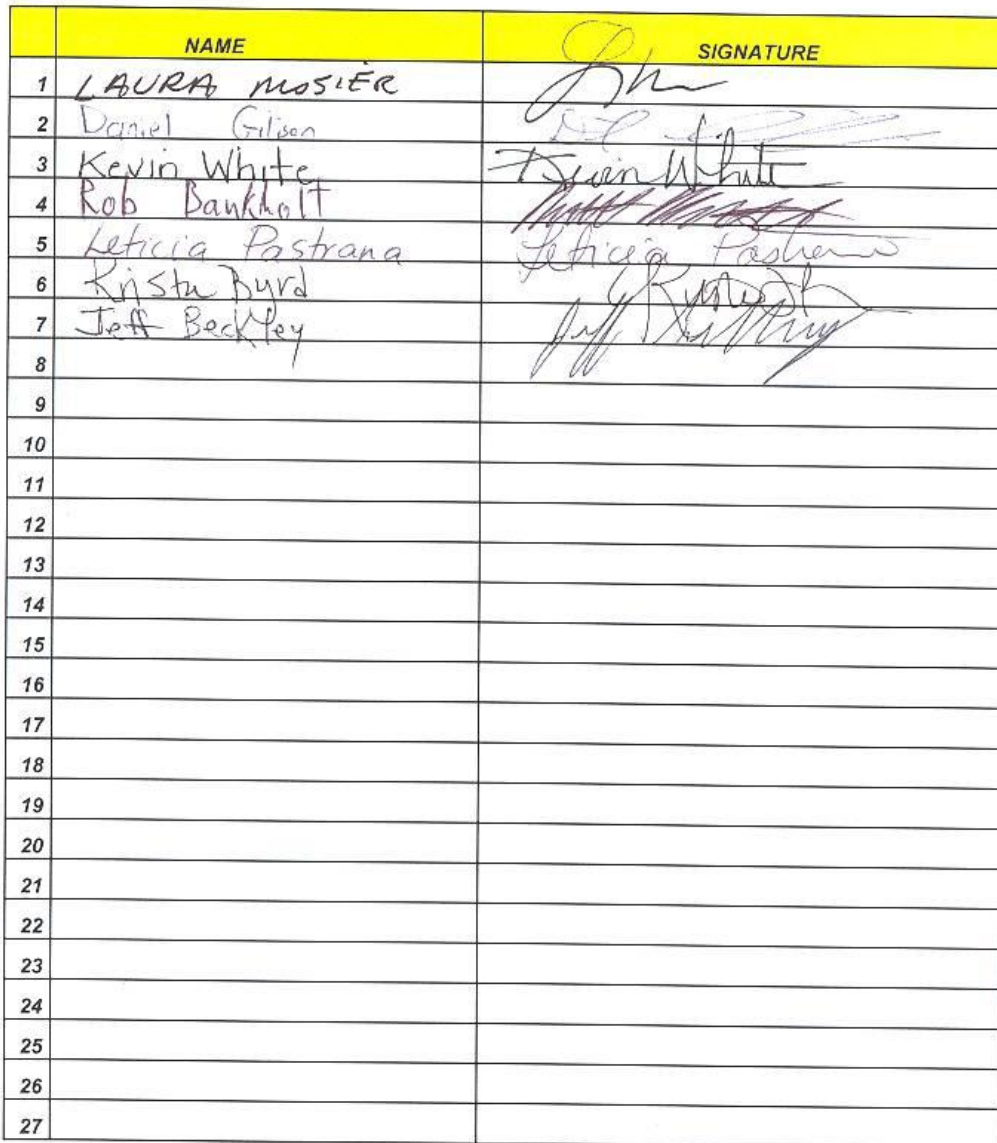 NAME SIGNATURE
1 LAURA MOSIER
2 Daniel Gilison
3 Kevin White Kevin White
4 Rob Bankholt
5 Leticia Pastrana Leticia
6 Krista Byrd
7 Jeff Beckley Jeff
8
9
10
11
12
13
14
15
16
17
18
19
20
21
22
23
24
25
26
27